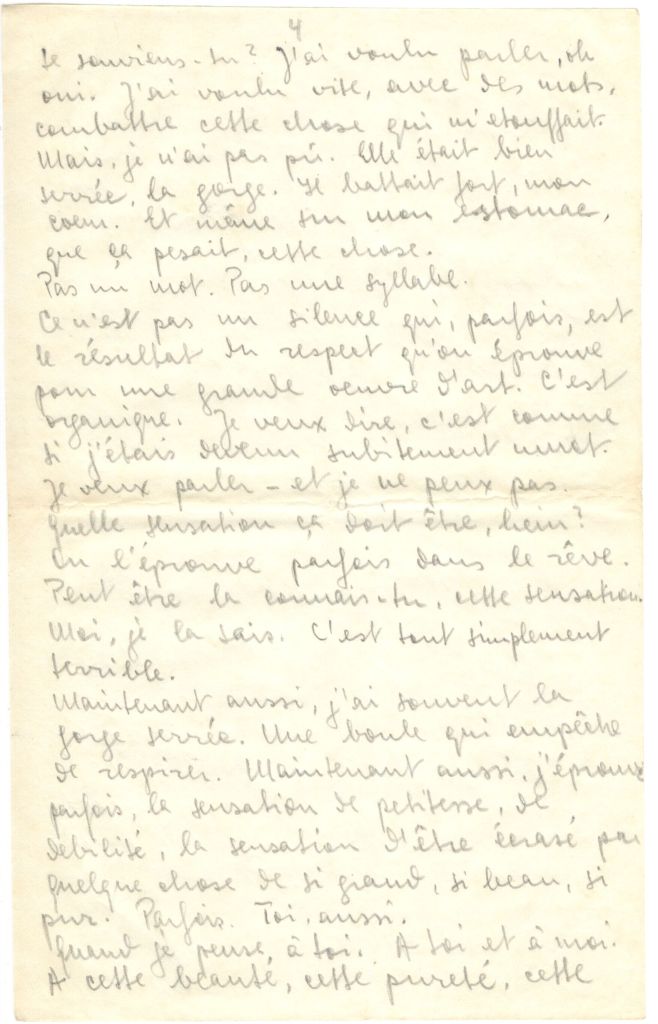 4
te souviens-tu? J'ai voulu parler, oh
oui. J'ai voulu vite, avec des mots,
combattre cette chose qui m'étouffait.
Mais, je n'ai pas pû. Elle était bien
serrée, la gorge. Il battait fort, mon
coeur. Et même sur mon estomac,
que ça pesait, cette chose.
Pas un mot. Pas une syllabe.
Ce n'est pas un silence qui, parfois, est
le résultat du respect qu'on éprouve
pour une grande oeuvre d'art. C'est
organique. Je veux dire, c'est comme
si j'étais devenu subitement muet.
Je veux parler – et je ne peux pas.
Quelle sensation ça doit être, hein?
On l'éprouve parfois dans le rêve.
Peut être la connais-tu, cette sensation.
Moi, je la sais. C'est tout simplement
terrible.
Maintenant aussi, j'ai souvent la
gorge serrée. Une boule qui empêche
de respirer. Maintenant aussi, j'éprouve
parfois, la sensation de petitesse, de
debilité, la sensation d'être écrasé par
quelque chose de si grand, si beau, si
pur. Parfois. Toi aussi.
Quand je pense, à toi. A toi et à moi.
A cette beauté, cette pureté, cette